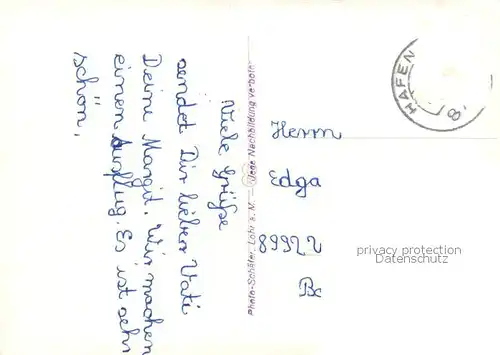 Viele Grüße
sendet Dir lieber Vati
Deine Margit. Wir machen
einen Ausflug. Es ist sehr
schön.
Photo-Schäfer, Lohr a. M. — Jede Nachbildung verboten
HAFEN
Herrn
Edga
89922
privacy protection
Datenschutz